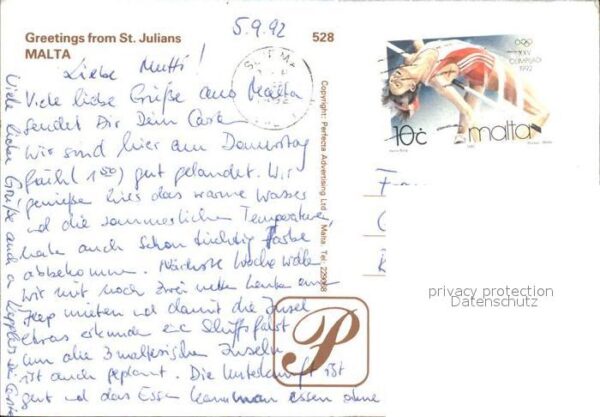 5.9.92
Greetings from St. Julians
MALTA
528
Liebe Mutti!
Viele liebe Grüße aus Malta
sendet Dir Dein
Wir sind hier am Donnerstag
früh (1⁵⁰) gut gelandet. Wir
genießen hier das warme Wasser
und die sommerlichen Temperaturen,
habe auch schon tüchtig Farbe
abbekommen. Nächste Woche wollen
wir mit noch zwei netten Leuten einen
Jeep mieten und damit die Insel
etwas erkunden Schiffsfahrt
um die 3 maltesischen Inseln
ist auch geplant. Die Unterkunft ist
gut und das Essen kann man essen ohne
Viele liebe Grüße auch an
Copyright: Perfecta Advertising Ltd. Malta. Tel: 229908
P
XXV
OLIMPIADI
1992
10c
malta
privacy protection
Datenschutz